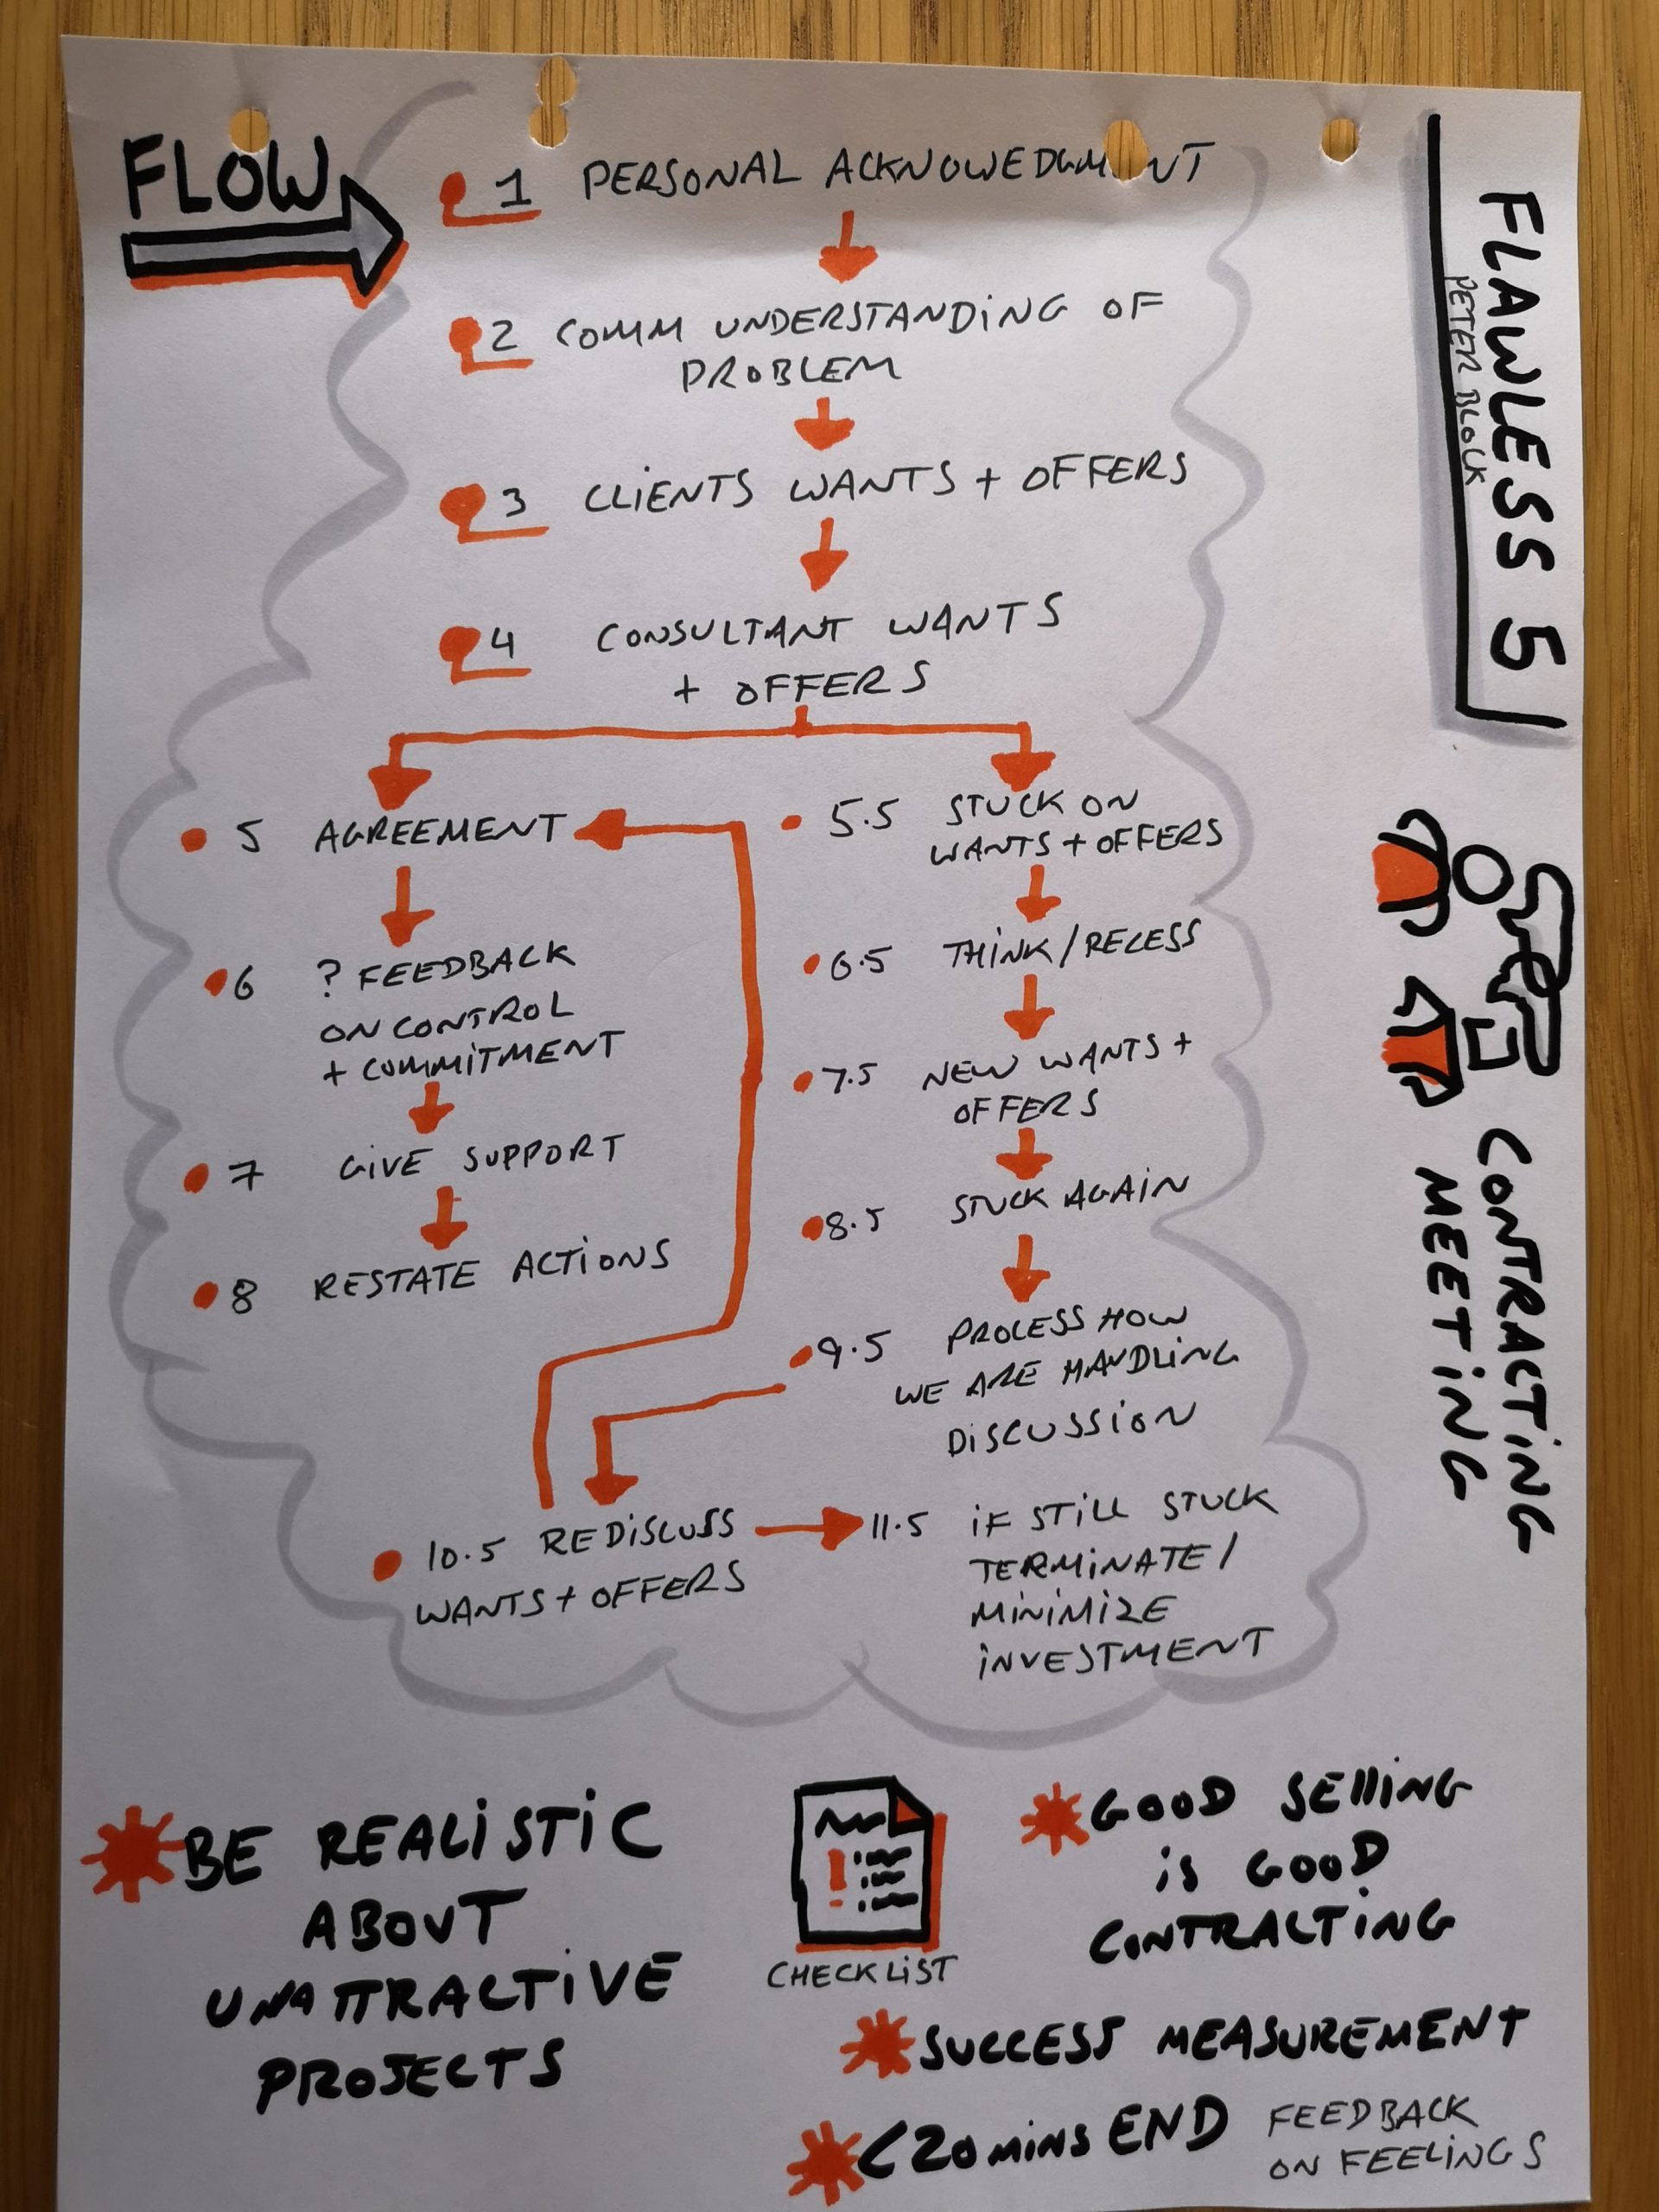 FLOW
1 PERSONAL ACKNOWEDGMENT
2 COMM UNDERSTANDING OF
PROBLEM
3 CLIENTS WANTS + OFFERS
4 CONSULTANT WANTS
+ OFFERS
5 AGREEMENT
6 ? FEEDBACK
ON CONTROL
+ COMMITMENT
7 GIVE SUPPORT
8 RESTATE ACTIONS
5.5 STUCK ON
WANTS + OFFERS
6.5 THINK / RECESS
7.5 NEW WANTS +
OFFERS
8.5 STUCK AGAIN
9.5 PROCESS HOW
WE ARE HANDLING
DISCUSSION
10.5 REDISCUSS
WANTS + OFFERS
11.5 IF STILL STUCK
TERMINATE /
MINIMIZE
INVESTMENT
FLAWLESS 5
PETER BLOCK
CONTRACTING
MEETING
BE REALISTIC
ABOUT
UNATTRACTIVE
PROJECTS
CHECKLIST
GOOD SELLING
IS GOOD
CONTRACTING
SUCCESS MEASUREMENT
<20 MINS END FEEDBACK
ON FEELINGS